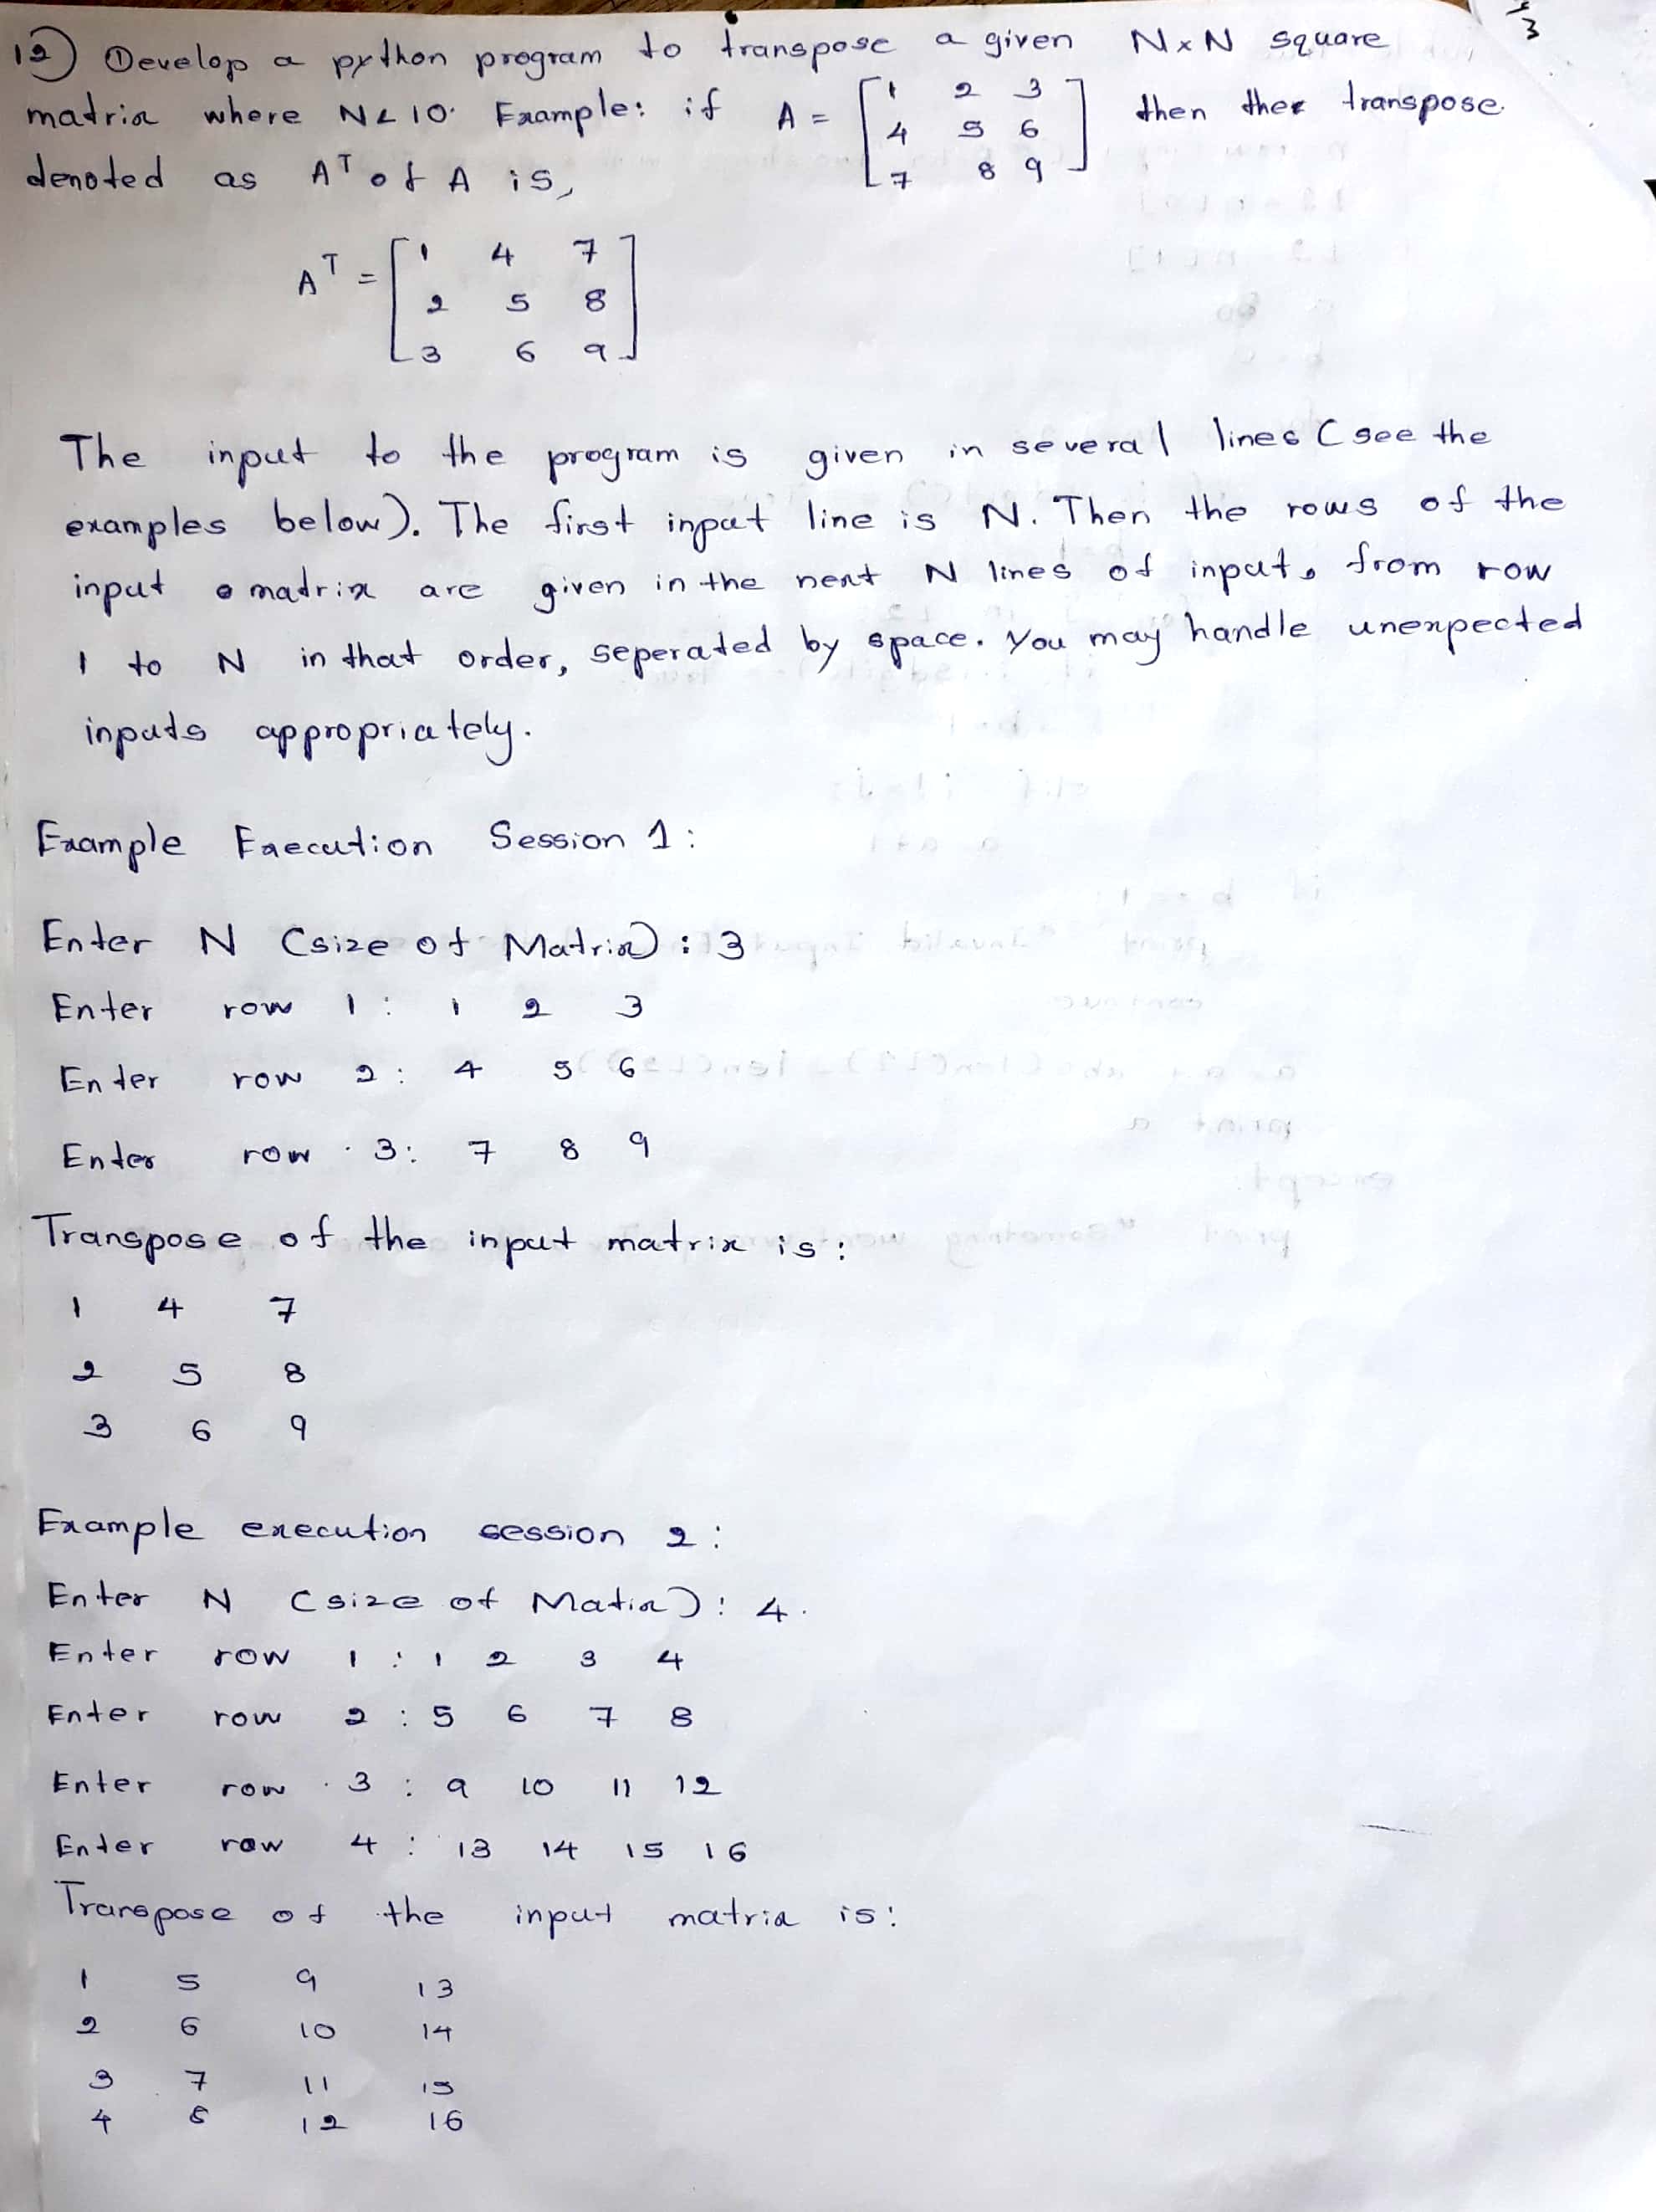 12) ① Develop a python program to transpose a given N x N square
matrix where N < 10. Example: if A = [ 1 2 3 ] then thee transpose
[ 4 5 6 ]
[ 7 8 9 ]
denoted as A^T of A is,
A^T = [ 1 4 7 ]
[ 2 5 8 ]
[ 3 6 9 ]
The input to the program is given in several lines (see the
examples below). The first input line is N. Then the rows of the
input matrix are given in the next N lines of input, from row
1 to N in that order, seperated by space. You may handle unexpected
inputs appropriately.
Example Execution Session 1:
Enter N (size of Matrix) : 3
Enter row 1 : 1 2 3
Enter row 2 : 4 5 6
Enter row 3 : 7 8 9
Transpose of the input matrix is :
1 4 7
2 5 8
3 6 9
Example execution session 2 :
Enter N (size of Matix) : 4.
Enter row 1 : 1 2 3 4
Enter row 2 : 5 6 7 8
Enter row 3 : 9 10 11 12
Enter row 4 : 13 14 15 16
Transpose of the input matrix is :
1 5 9 13
2 6 10 14
3 7 11 15
4 8 12 16